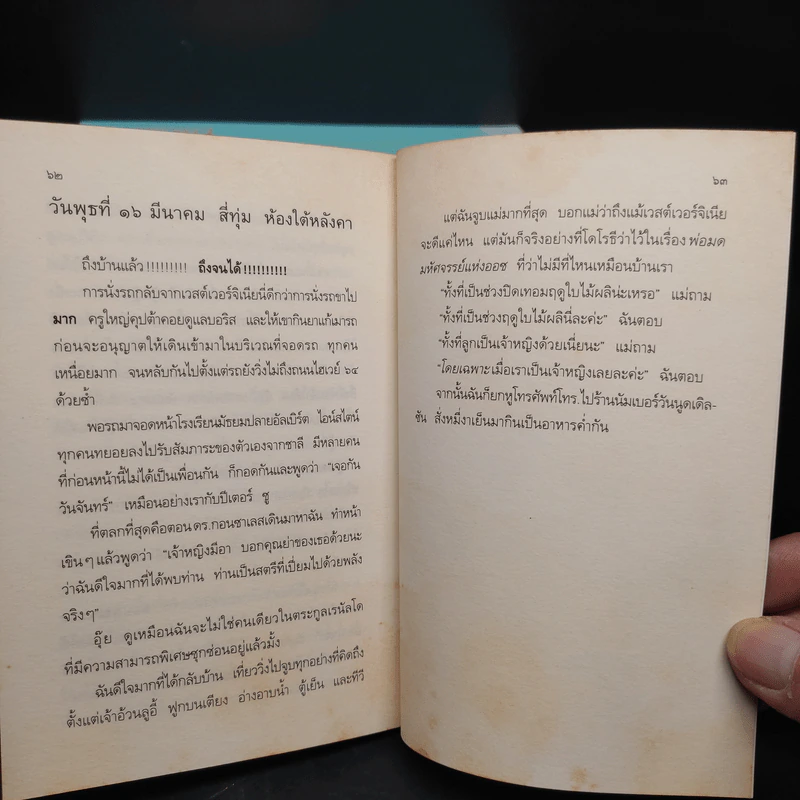 ๖๒
วันพุธที่ ๑๖ มีนาคม สี่ทุ่ม ห้องใต้หลังคา
ถึงบ้านแล้ว!!!!!!!!! ถึงจนได้!!!!!!!!!!
การนั่งรถกลับจากเวสต์เวอร์จิเนียนี่ดีกว่าการนั่งรถขาไป
มาก ครูใหญ่คุปต้าคอยดูแลบอริส และให้เขากินยาแก้เมารถ
ก่อนจะอนุญาตให้เดินเข้ามาในบริเวณที่จอดรถ ทุกคน
เหนื่อยมาก จนหลับกันไปตั้งแต่รถยังวิ่งไม่ถึงถนนไฮเวย์ ๖๔
ด้วยซ้ำ
พอรถมาจอดหน้าโรงเรียนมัธยมปลายอัลเบิร์ต ไอน์สไตน์
ทุกคนทยอยลงไปรับสัมภาระของตัวเองจากซาลี มีหลายคน
ที่ก่อนหน้านี้ไม่ได้เป็นเพื่อนกัน ก็กอดกันและพูดว่า “เจอกัน
วันจันทร์” เหมือนอย่างเรากับปีเตอร์ ซู
ที่ตลกที่สุดคือตอน ดร.กอนซาเลสเดินมาหาฉัน ทำหน้า
เขินๆ แล้วพูดว่า “เจ้าหญิงมีอา บอกคุณย่าของเธอด้วยนะ
ว่าฉันดีใจมากที่ได้พบท่าน ท่านเป็นสตรีที่เปี่ยมไปด้วยพลัง
จริงๆ”
อุ๊ย ดูเหมือนฉันจะไม่ใช่คนเดียวในตระกูลเรนัลโด
ที่มีความสามารถพิเศษซุกซ่อนอยู่แล้วมั้ง
ฉันดีใจมากที่ได้กลับบ้าน เที่ยววิ่งไปจูบทุกอย่างที่คิดถึง
ตั้งแต่เจ้าอ้วนลูอี้ ฟูกบนเตียง อ่างอาบน้ำ ตู้เย็น และทีวี
๖๓
แต่ฉันจูบแม่มากที่สุด บอกแม่ว่าถึงแม้เวสต์เวอร์จิเนีย
จะดีแค่ไหน แต่มันก็จริงอย่างที่โดโรธีว่าไว้ในเรื่อง พ่อมด
มหัศจรรย์แห่งออซ ที่ว่าไม่มีที่ไหนเหมือนบ้านเรา
“ทั้งที่เป็นช่วงปิดเทอมฤดูใบไม้ผลิน่ะเหรอ” แม่ถาม
“ทั้งที่เป็นช่วงฤดูใบไม้ผลินี่ละค่ะ” ฉันตอบ
“ทั้งที่ลูกเป็นเจ้าหญิงด้วยเนี่ยนะ” แม่ถาม
“โดยเฉพาะเมื่อเราเป็นเจ้าหญิงเลยละค่ะ” ฉันตอบ
จากนั้นฉันก็ยกหูโทรศัพท์โทร.ไปร้านนัมเบอร์วันนูดเดิล-
ซัน สั่งหมี่งาเย็นมากินเป็นอาหารค่ำกัน